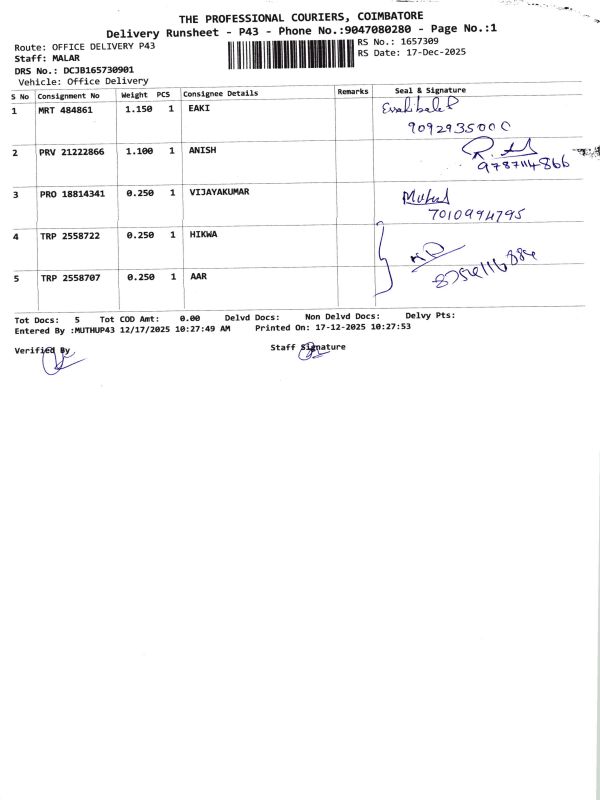 THE PROFESSIONAL COURIERS, COIMBATORE
Delivery Runsheet - P43 - Phone No.:9047080280 - Page No.:1
Route: OFFICE DELIVERY P43
RS No.: 1657309
Staff: MALAR
RS Date: 17-Dec-2025
DRS No.: DCJB165730901
Vehicle: Office Delivery
S No Consignment No Weight PCS Consignee Details Remarks Seal & Signature
1 MRT 484861 1.150 1 EAKI
9092935000
2 PRV 21222866 1.100 1 ANISH
9787114866
3 PRO 18814341 0.250 1 VIJAYAKUMAR
7010994795
4 TRP 2558722 0.250 1 HIKWA
5 TRP 2558707 0.250 1 AAR
Tot Docs: 5 Tot COD Amt: 0.00 Delvd Docs: Non Delvd Docs: Delvy Pts:
Entered By :MUTHUP43 12/17/2025 10:27:49 AM Printed On: 17-12-2025 10:27:53
Verified By Staff Signature